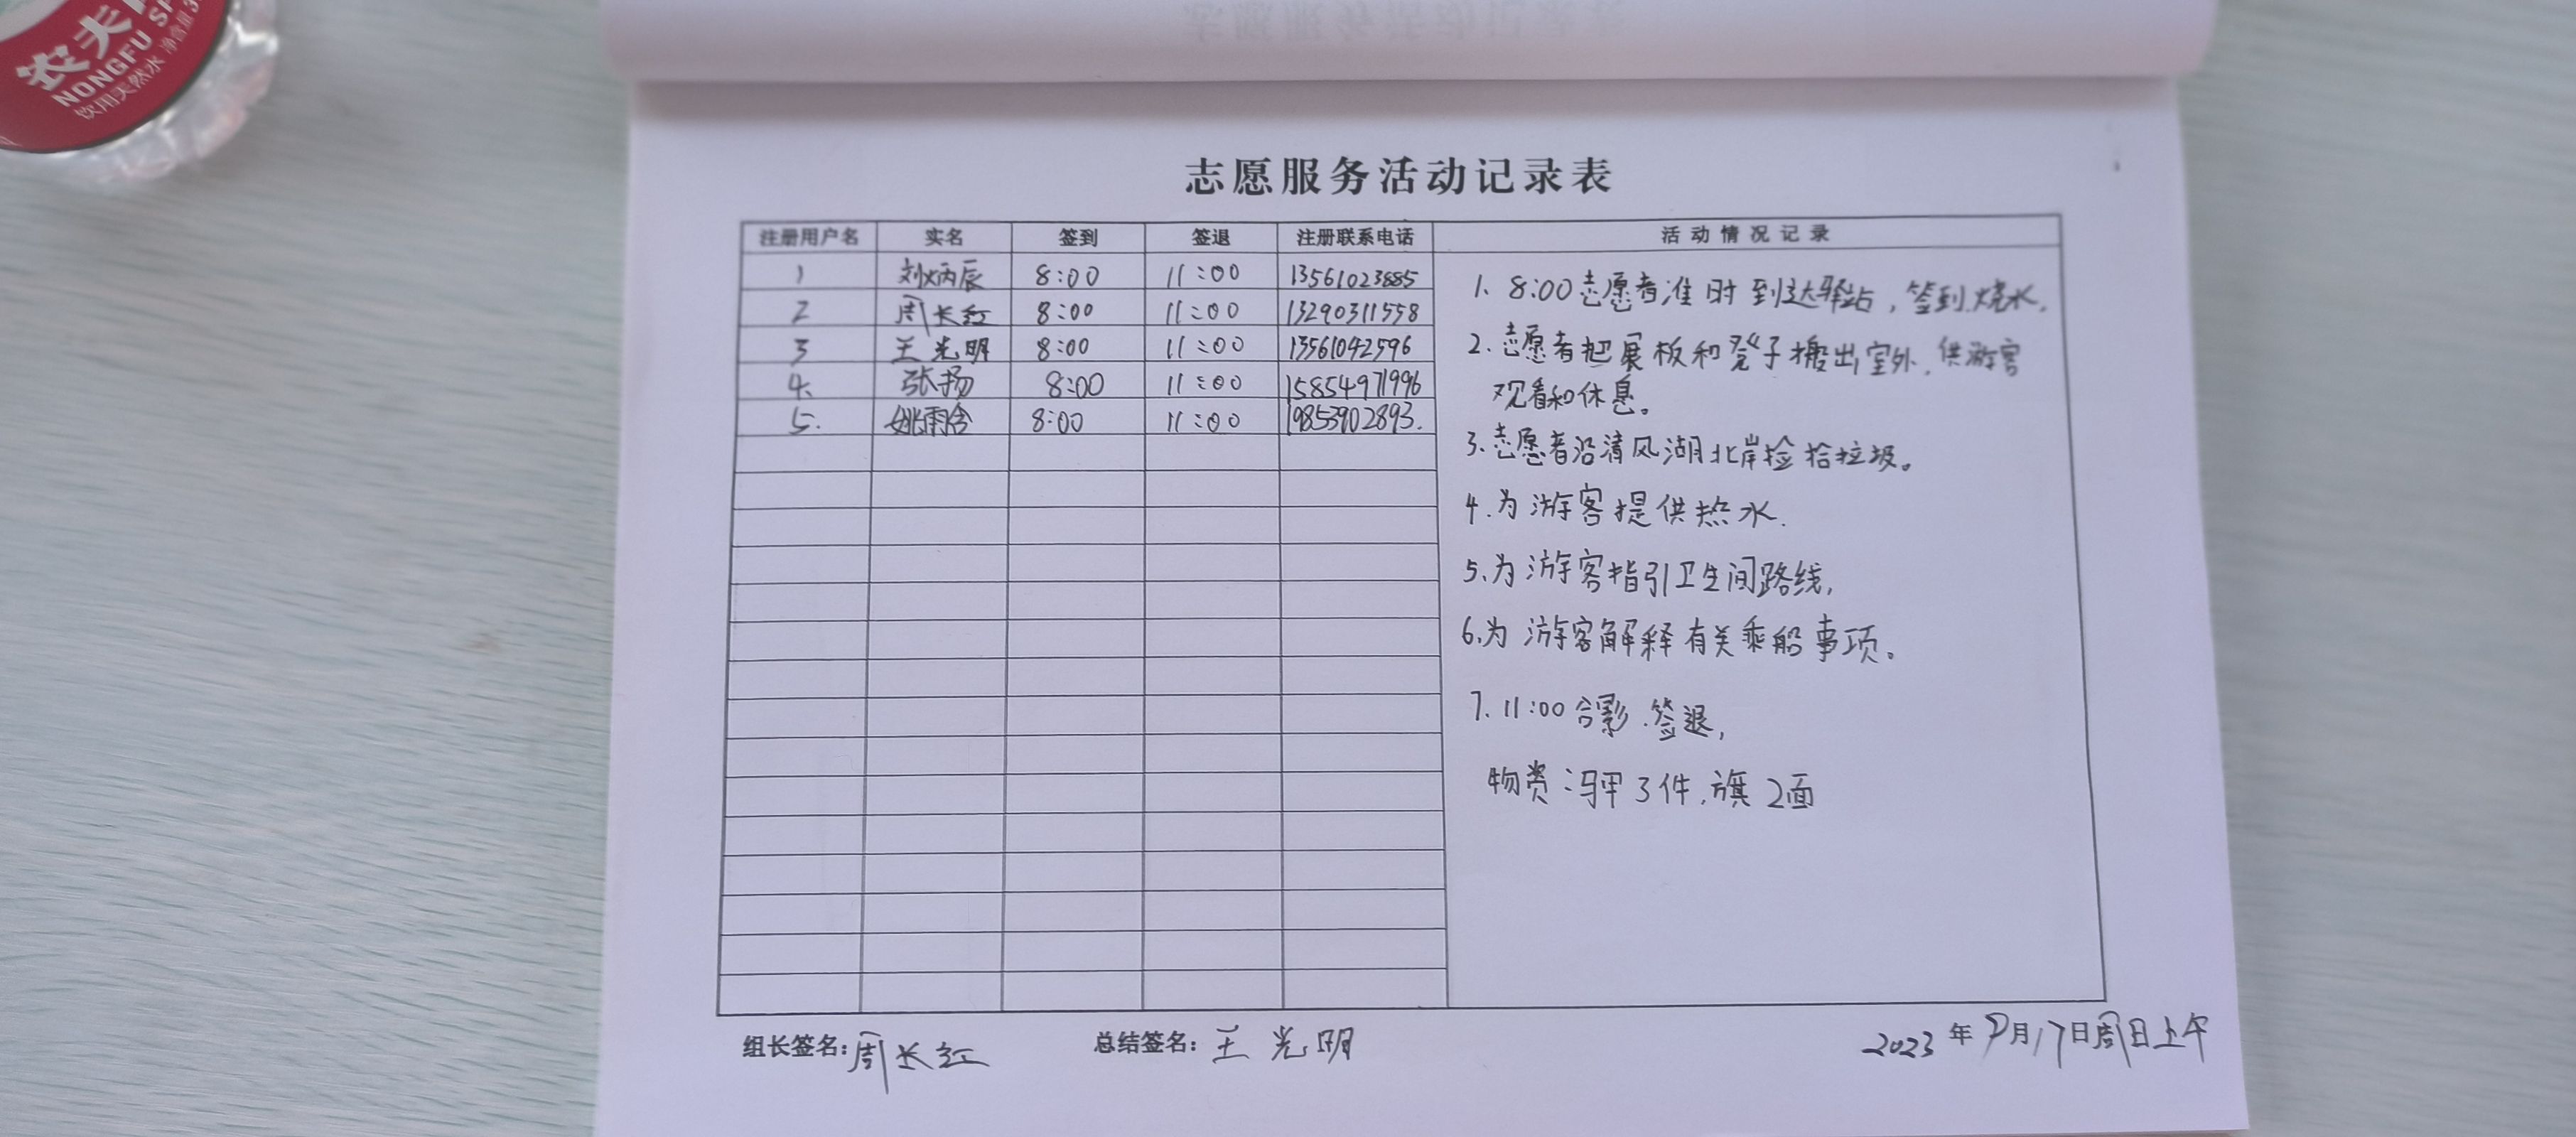 农夫
NONGFU SP
饮用天然水 净含量
志愿服务活动记录表
注册用户名 实名 签到 签退 注册联系电话 活动情况记录
1 刘炳辰 8:00 11:00 13561023885
2 周长红 8:00 11:00 13290311558
3 王光明 8:00 11:00 13561042596
4. 张扬 8:00 11:00 15854971996
5. 姚雨含 8:00 11:00 19853902893.
1. 8:00志愿者准时到达驿站，签到.烧水.
2.志愿者把展板和凳子搬出室外，供游客
观看和休息。
3.志愿者沿清风湖北岸捡拾垃圾。
4.为游客提供热水.
5.为游客指引卫生间路线,
6.为游客解释有关乘船事项。
7. 11:00合影.签退,
物资:马甲3件,旗2面
组长签名:周长红 总结签名:王光明 2023年9月17日周日上午